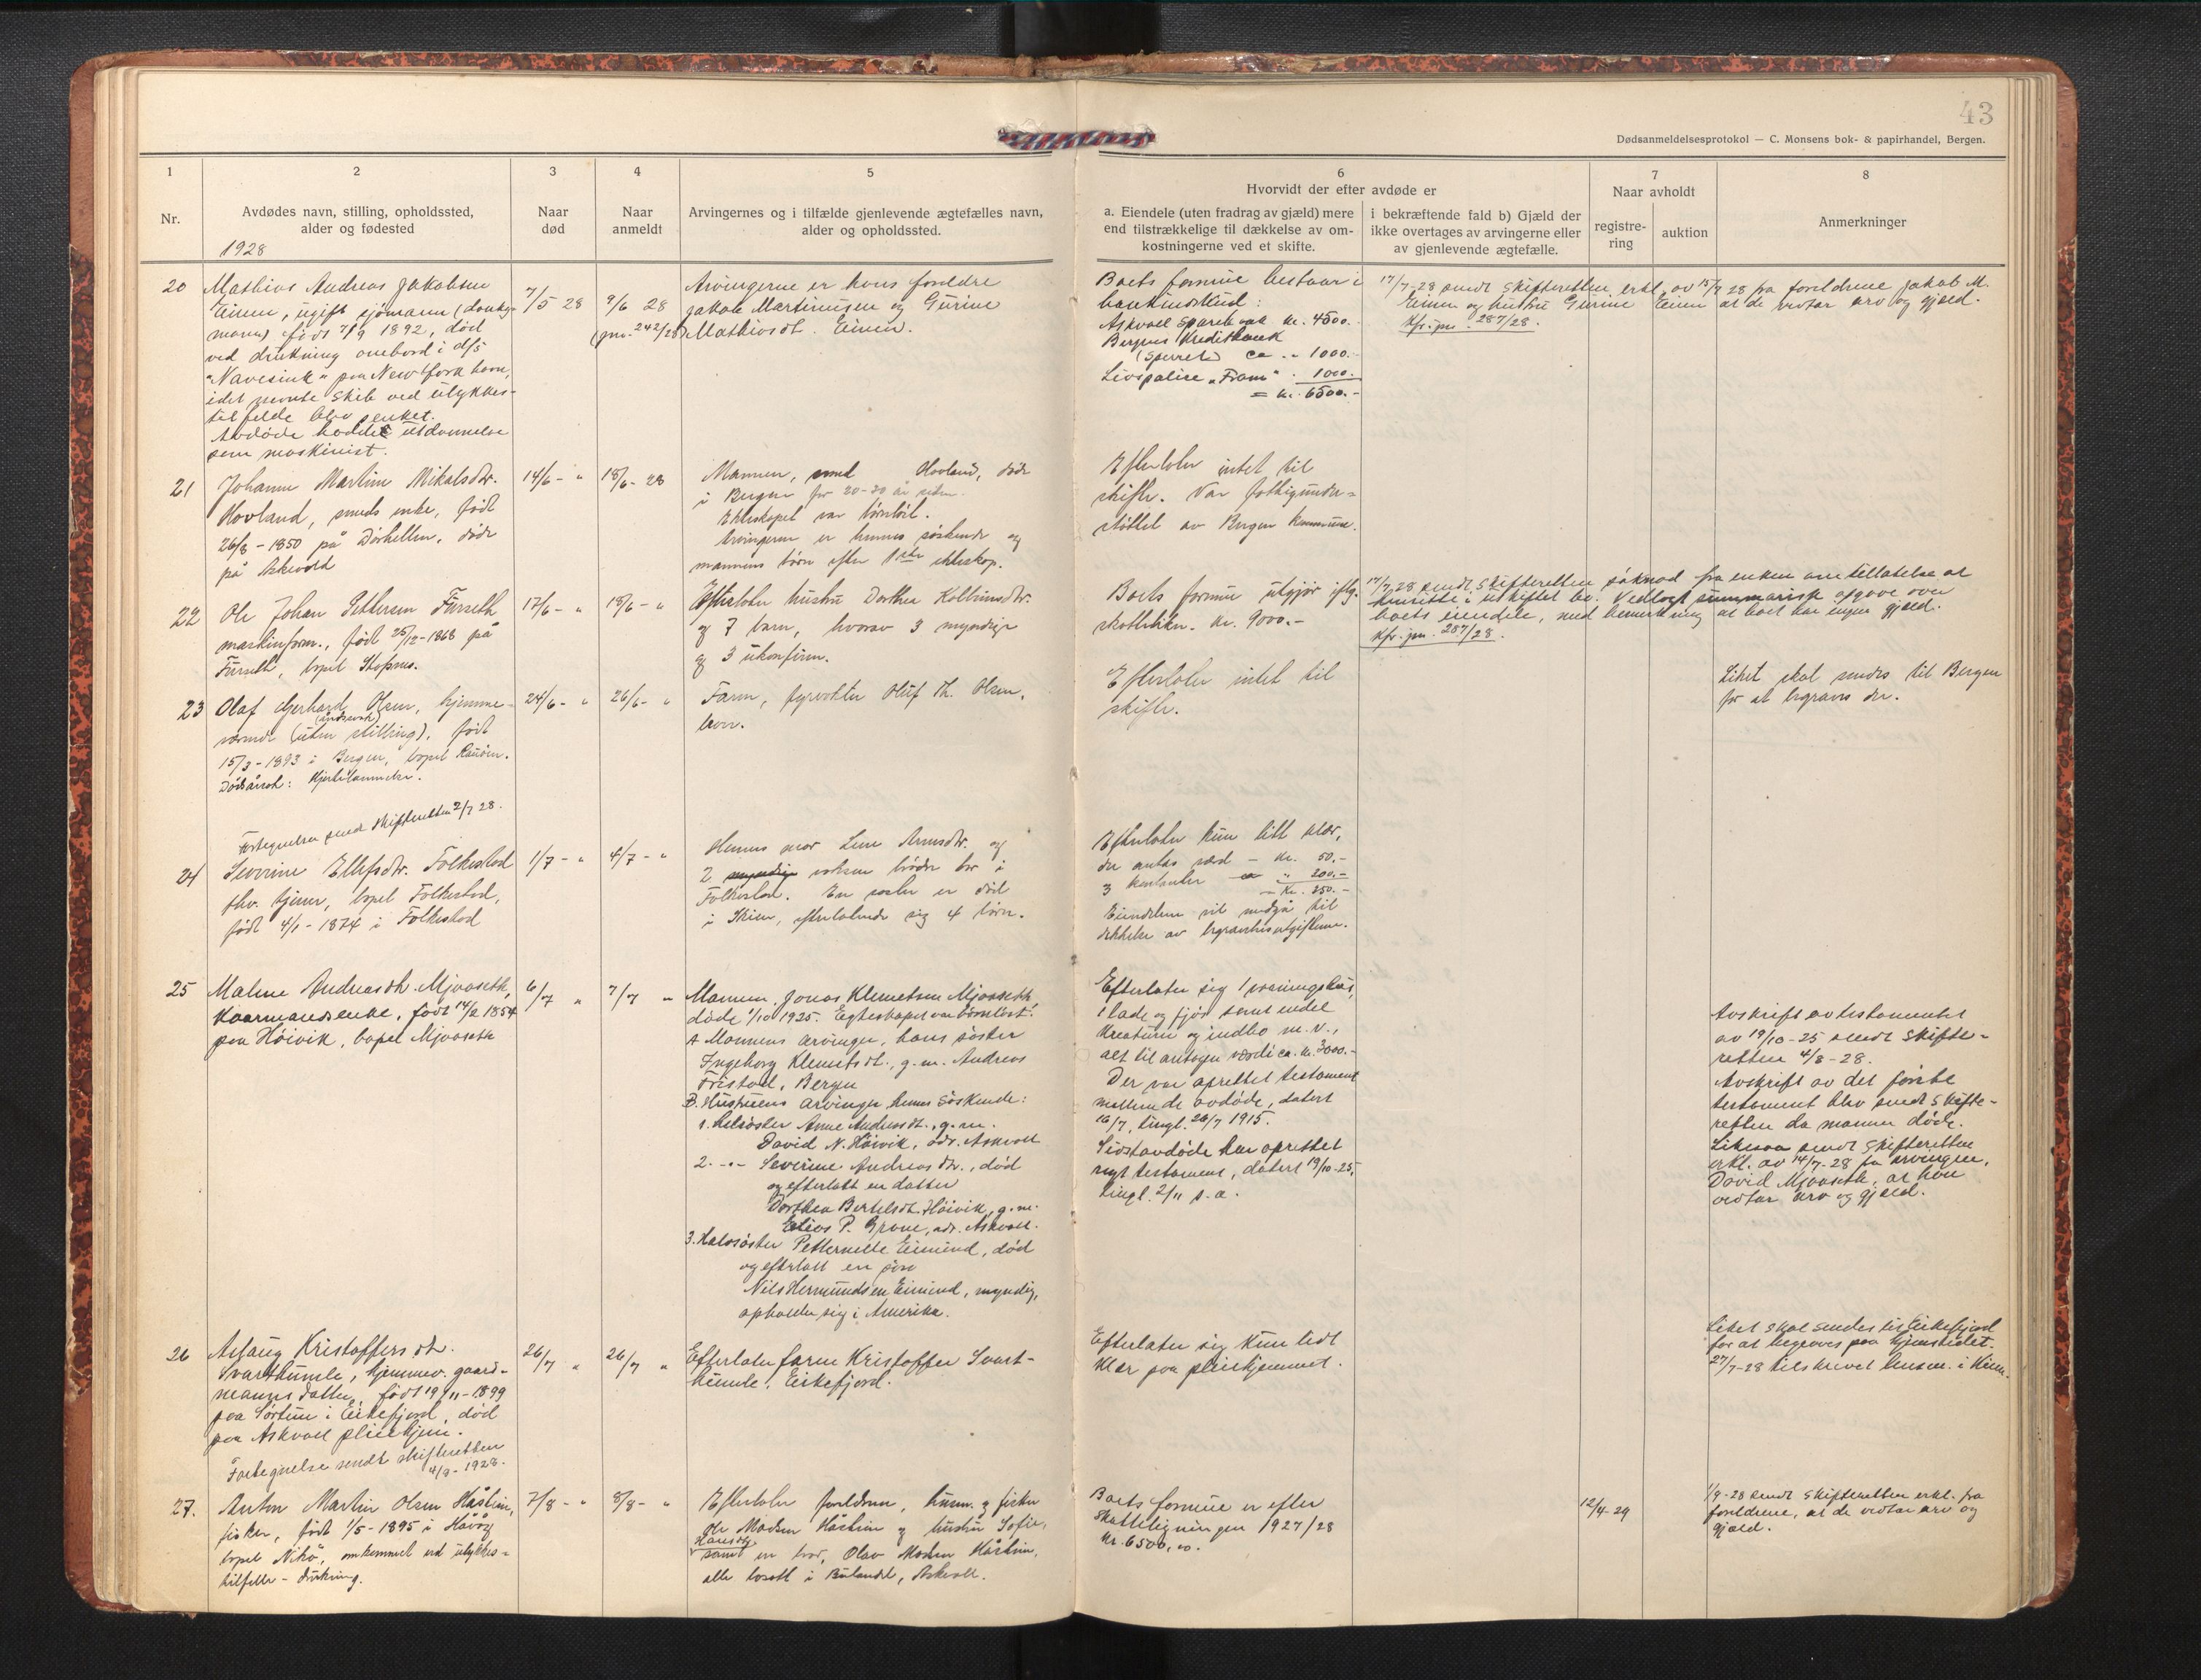 43
Dødsanmeldelsesprotokol — C. Monsens bok- & papirhandel, Bergen.
1
Nr.
2
Avdødes navn, stilling, opholdssted,
alder og fødested
1928
3
Naar
død
4
Naar
anmeldt
5
Arvingernes og i tilfælde gjenlevende ægtefælles navn,
alder og opholdssted.
6
Hvorvidt der efter avdøde er
a. Eiendele (uten fradrag av gjæld) mere
end tilstrækkelige til dækkelse av om-
kostningerne ved et skifte.
i bekræftende fald b) Gjæld der
ikke overtages av arvingerne eller
av gjenlevende ægtefælle.
7
Naar avholdt
registre-
ring
auktion
8
Anmerkninger
20
Mathias Andreas Jakobsen
Eimen, ugift sjømann (donky-
mann) født 7/9 1892, død
ved drukning ombord i d/s
"Navesink" paa New York havn,
idet nevnte skib ved ulykkes-
tilfelde blev senket.
Avdøde hadde utdannelse
som maskinist.
7/5 28
9/6 28
(jnr. 242/28)
Arvingerne er hans foreldre
Jakob Martinusen og Gurine
Mathiasdt. Eimen.
Boets formue bestaar i
bankinnskud:
Askvoll Sparebank kr. 4500.-
Bergens Kreditbank
(Sperret) ca. " 1000.-
Livspolise "Fram" " 1000.-
= kr. 6500.-
17/7-28 sendt skifteretten erkl. av 15/7 28 fra foreldrene Jakob M.
Eimen og hustru Gurine Eimen at de vedtar arv og gjæld.
Kfr. jnr. 287/28.
21
Johanne Martine Mikalsdtr.
Hovland, smeds enke, født
26/8-1850 på Dørhellen, døde
på Askvoll
14/6 - "
18/6 - 28
Mannen, smed Hovland, døde
i Bergen for 20-30 år siden.
Ekteskapet var barnløst.
Arvingerne er hennes søskende og
mannens børn efter 1ste ekteskap.
Efterlater intet til
skifte. Var fattigunder-
støttet av Bergen kommune.
22
Ole Johan Pettersen Furseth
maskinform., født 25/12-1868 på
Furseth, bopel Stofsnes.
17/6 - "
18/6 - "
Efterlater hustru Dorthea Kolbeinsdtr.
og 7 barn, hvorav 3 myndige
og 3 ukonfirm.
Boets formue utgjør iflg.
skattelikn. kr. 9000.-
17/7-28 sendt skifteretten søknad fra enken om tillatelse at
hensitte i uskiftet bo. Vedlagt summarisk opgave over
boets eiendele, med bemerkning at boet har ingen gjæld.
Kfr. jnr. 287/28.
23
Olaf Gerhard Olsen, hjemme-
værende (åndssvak) (uten stilling), født
15/3-1893 i Bergen, bopel Rauøen.
Dødsårsak: Hjertelammelse.
24/6 - "
26/6 - "
Faren, fyrvokter Oluf Th. Olsen,
lever.
Efterlater intet til
skifte.
Liket skal sendes til Bergen
for at begraves der.
Fortegnelse sendt skifteretten 2/7 28.
24
Severine Ellefsdtr. Folkestad
fhv. tjener, bopel Folkestad,
født 4/1-1874 i Folkestad
1/7 - "
4/7 - "
Hennes mor Lene Arnesdtr. og
2 voksne brødre bor i
Folkestad. En søster er død
i Skien, efterlatende sig 4 børn.
Efterlater kun litt klær,
der antas verd - kr. 50.-
3 kontanter ca " 200.-
= Kr. 250.-
Eiendelene vil medgå til
dekkelse av begravelsesutgiftene.
25
Malene Andreasdt. Mjvaseth,
kaarmandsenke, født 14/2 1854
paa Høivik, bopel Mjvaseth
6/7 "
7/7 "
Mannen, Jonas Klemetsen Mjvaseth,
døde 1/10 1925. Egteskapet var barnløst.
A Mannens arvinger, hans søster
Ingeborg Klemetsdt., g.m. Andreas
Fristad, Bergen
B. Hustruens arvinger hennes søskende:
1. Helsøster Anne Andreasdt., g.m.
David N. Høivik, adr. Askvoll
2. -"- Severine Andreasdtr., død
og efterlatt en datter
Dorthea Bertelsdt. Høivik, g.m.
Elias P. Grove, adr. Askvoll.
3. Halvsøster Petternelle Eimind, død
og efterlatt en søn
Nils Hermundsen Eimind, myndig,
opholder sig i Amerika.
Efterlater sig 1 vaaningshus,
1 lade og fjøs samt endel
kreaturer og indbo m.v.,
alt til antagen værdi ca. kr. 3000.-
Der var oprettet testament
mellem de avdøde, datert
16/7, tingl. 26/7 1915.
Sidstavdøde har oprettet
nyt testament, datert 19/10-25,
tingl. 2/11 s.a.
Avskrift av testamentet
av 19/10-25 sendt skifte-
retten 4/8-28.
Avskrift av det første
testament blev sendt skifte-
retten da mannen døde.
Likesaa sendt skifteretten
erkl. av 14/7-28 fra arvingen,
David Mjvaseth, at han
vedtar arv og gjæld.
26
Aslaug Kristoffersdt.
Svarthumle, hjemmev. gaard-
manns datter, født 19/11-1899
paa Sørtun i Eikefjord, død
paa Askvoll pleiehjem.
Fortegnelse sendt skifteretten
4/9-1928.
26/7 "
26/7 "
Efterlater faren Kristoffer Svart-
humle, Eikefjord.
Efterlater sig kun lidt
klær paa pleiehjemmet.
Liket skal sendes til Eikefjord
for at begraves paa hjemstedet.
27/7-28 tilskrevet lensm. i Kinn.
27.
Anton Martin Olsen Håstein,
fisker, født 1/5-1895 i Håvåg
bopel Nikø, omkommet ved ulykkes-
tilfelle - drukning.
7/8 - "
8/8 - "
Efterlater foreldrene, husm. og fisker
Ole Madsen Håstein og hustru Sofie
Hansdtr.
samt en bror, Olav Madsen Håstein,
alle bosatt i Bulandet, Askvoll.
Boets formue er efter
skatteligningen 1927/28
kr. 6500,00.
12/4-29
1/9-28 sendt skifteretten erkl. fra
foreldrene, at de vedtar arv og
gjæld.